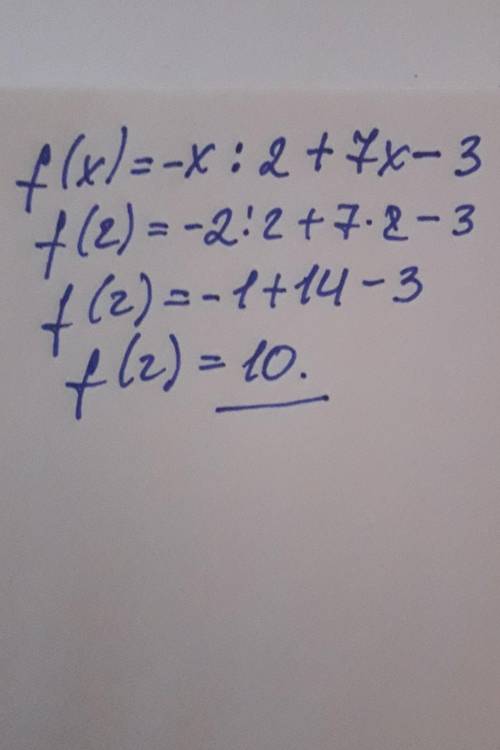 f(x) = -x : 2 + 7x - 3
f(2) = -2 : 2 + 7 · 2 - 3
f(2) = -1 + 14 - 3
f(2) = 10.